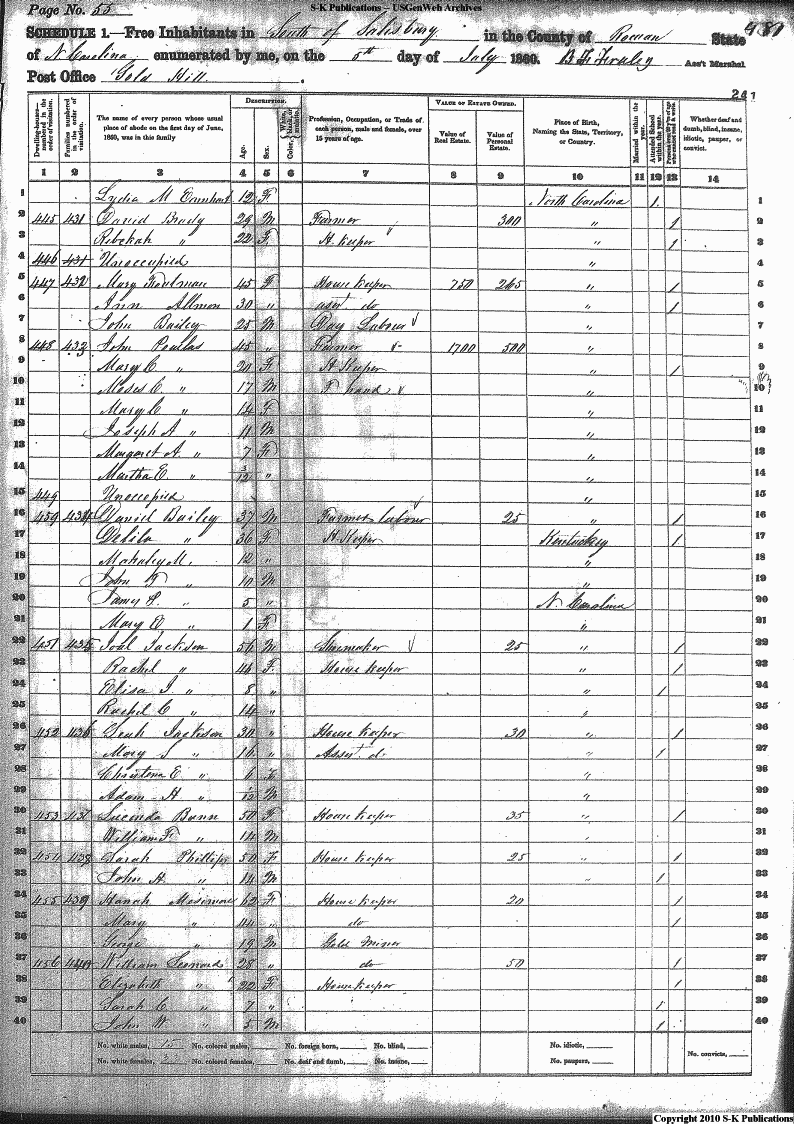 S-K Publications – USGenWeb Archives
Page No. 55
SCHEDULE 1.—Free Inhabitants in South of Salisbury in the County of Rowan State
of N Carolina enumerated by me, on the 5th day of July 1860. Ass't Marshal
Post Office Gold Hill.
241
Dwelling-houses—numbered in the order of visitation.
Families numbered in the order of visitation.
The name of every person whose usual place of abode on the first day of June, 1860, was in this family
Description.
Age.
Sex.
Color,
Profession, Occupation, or Trade of each person, male and female, over 15 years of age.
Value of Estate Owned.
Value of Real Estate.
Value of Personal Estate.
Place of Birth, Naming the State, Territory, or Country.
Married within the year.
Attended School within the year.
Whether deaf and dumb, blind, insane, idiotic, pauper, or convict.
1 2 3 4 5 6 7 8 9 10 11 12 13 14
1 Lydia M Earnhart 12 F North Carolina 1 1
2 445 431 David Brady 29 M Farmer 300 " 1 2
3 Rebekah " 22 F H. keeper " 1 3
4 446 431 Unoccupied " 4
5 447 432 Mary 45 F House Keeper 750 265 " 1 5
6 Ann Allmon 30 " asst. do " 1 6
7 John Bailey 25 M Day Labour " 7
8 448 433 John 45 " Farmer 1700 500 " 8
9 Mary C " 20 F H Keeper " 1 9
10 Moses C " 17 M F hand " 10
11 Mary C " 14 F " 11
12 Joseph A " 11 M " 12
13 Margaret A " 7 F " 13
14 Martha E. " 3/12 " " 14
15 449 Unoccupied " 15
16 459 434 Daniel Bailey 37 M Farmer labour 25 " 1 16
17 Delila " 36 F H Keeper Kentuckey 1 17
18 12 " " 18
19 John " 10 M " 19
20 James " 5 " N Carolina 20
21 Mary E " 1 F " 21
22 451 435 Joal Jackson 56 M Shumaker 25 " 1 22
23 Rachel " 44 F House keeper " 1 23
24 Elisa J. " 8 " " 1 24
25 Rachel C " 14 " " 25
26 452 436 Leah Jackson 30 " House keeper 30 " 1 26
27 Mary S " 16 " Asst. do " 1 27
28 Christena E " 6 F " 28
29 Adam H " M " 29
30 453 437 Lucinda Bunn 50 F House Keeper 35 " 1 30
31 William F. " 14 M 31
32 454 438 Sarah Phillips 50 F House Keeper 25 " 1 32
33 John H " 14 M " 1 33
34 455 439 Hanah 62 F House Keeper 20 1 34
35 Mary " 44 " do 1 35
36 George " 19 M Gold Miner 36
37 456 440 William Leonard 28 " do 50 1 37
38 Elizabeth " 22 F House keeper 1 38
39 Sarah C " 7 " 1 39
40 John W " 5 M 1 40
No. white males, 15 No. colored males, No. foreign born, No. blind, No. idiotic,
No. white females, No. colored females, No. deaf and dumb, No. insane, No. paupers, No. convicts,
Copyright 2010 S-K Publications